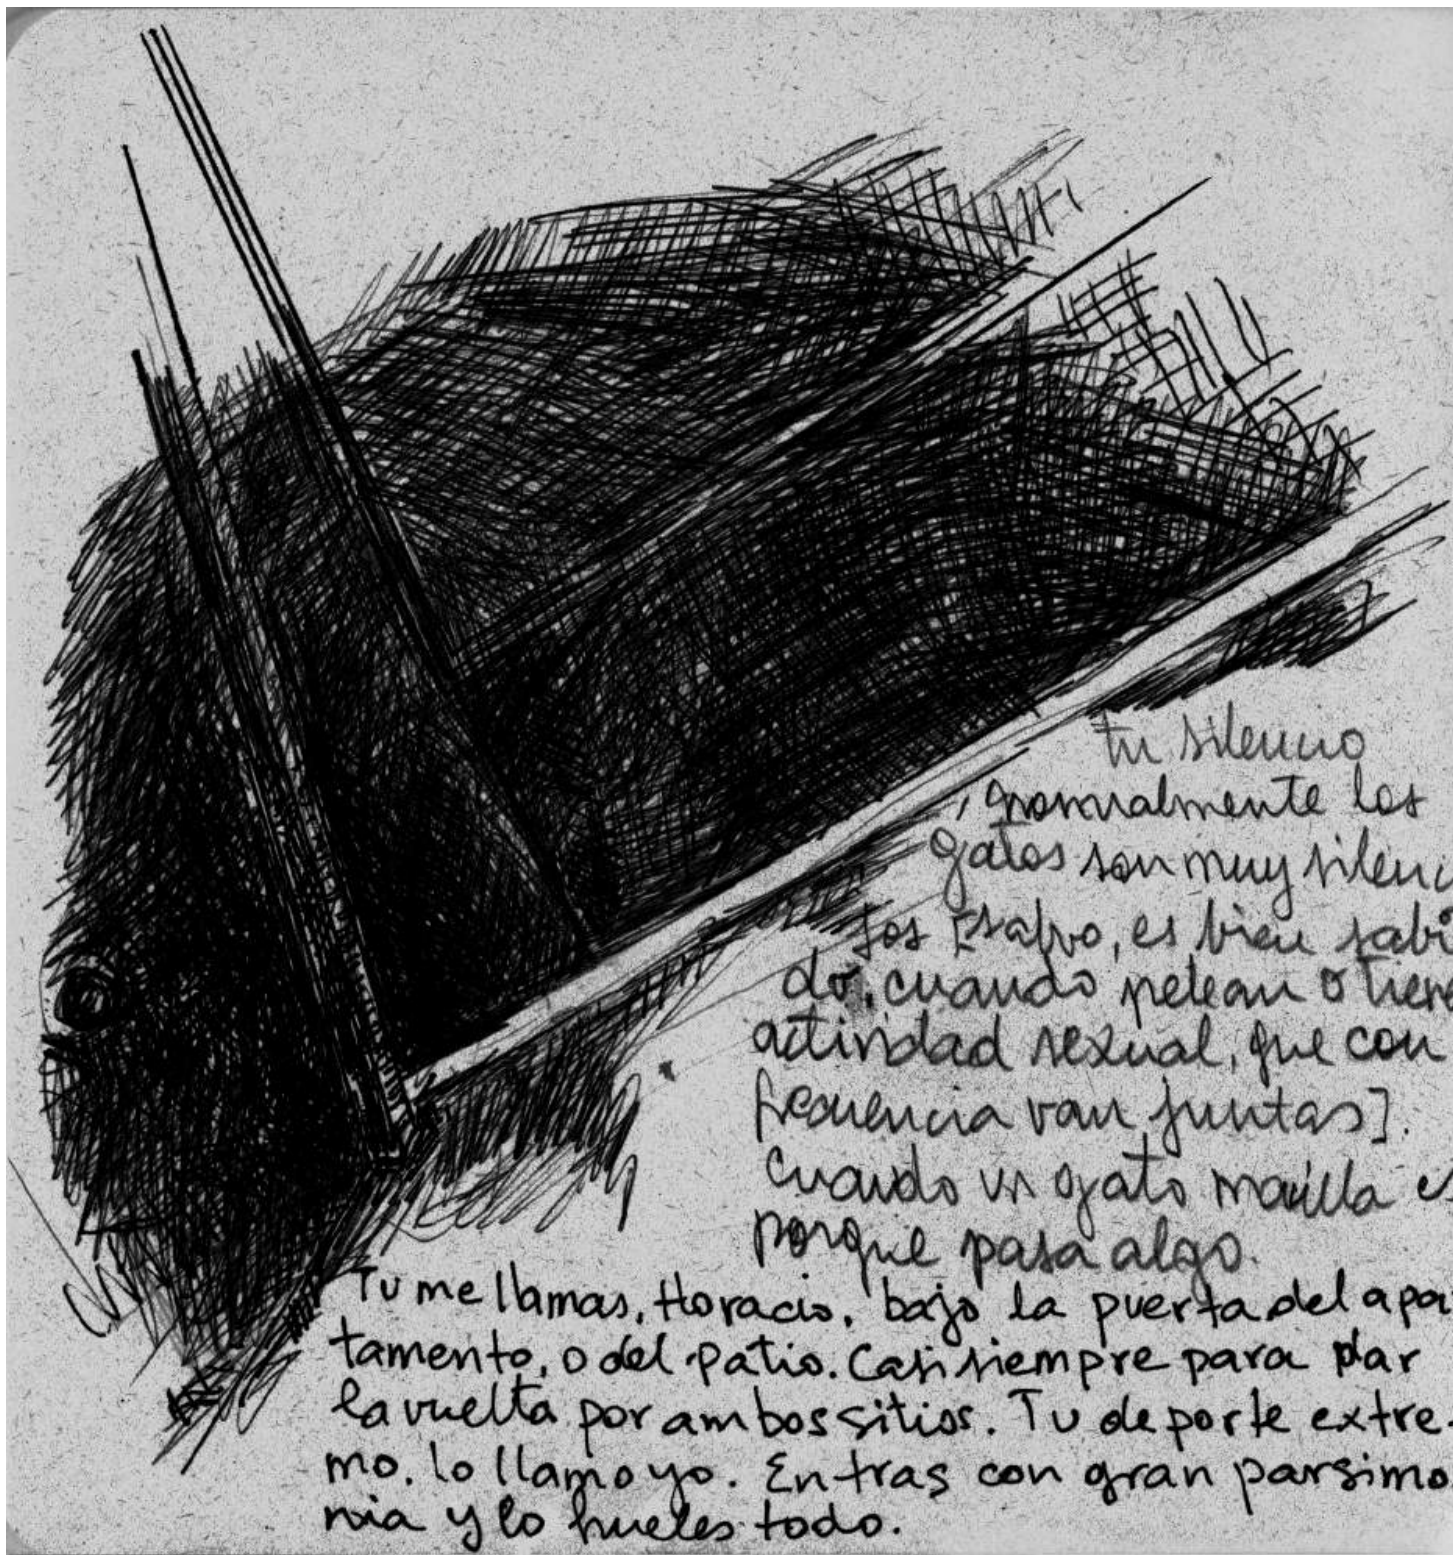 tu silencio
, normalmente los
gatos son muy silenc
sos [salvo, es bien sabi
do, cuando pelean o tien
actividad sexual, que con
frecuencia van juntas].
Cuando un gato maúlla e
porque pasa algo.
Tu me llamas, Horacio, bajo la puerta del apar
tamento, o del patio. Casi siempre para dar
la vuelta por ambos sitios. Tu deporte extre-
mo, lo llamo yo. Entras con gran parsimo
nia y lo hueles todo.